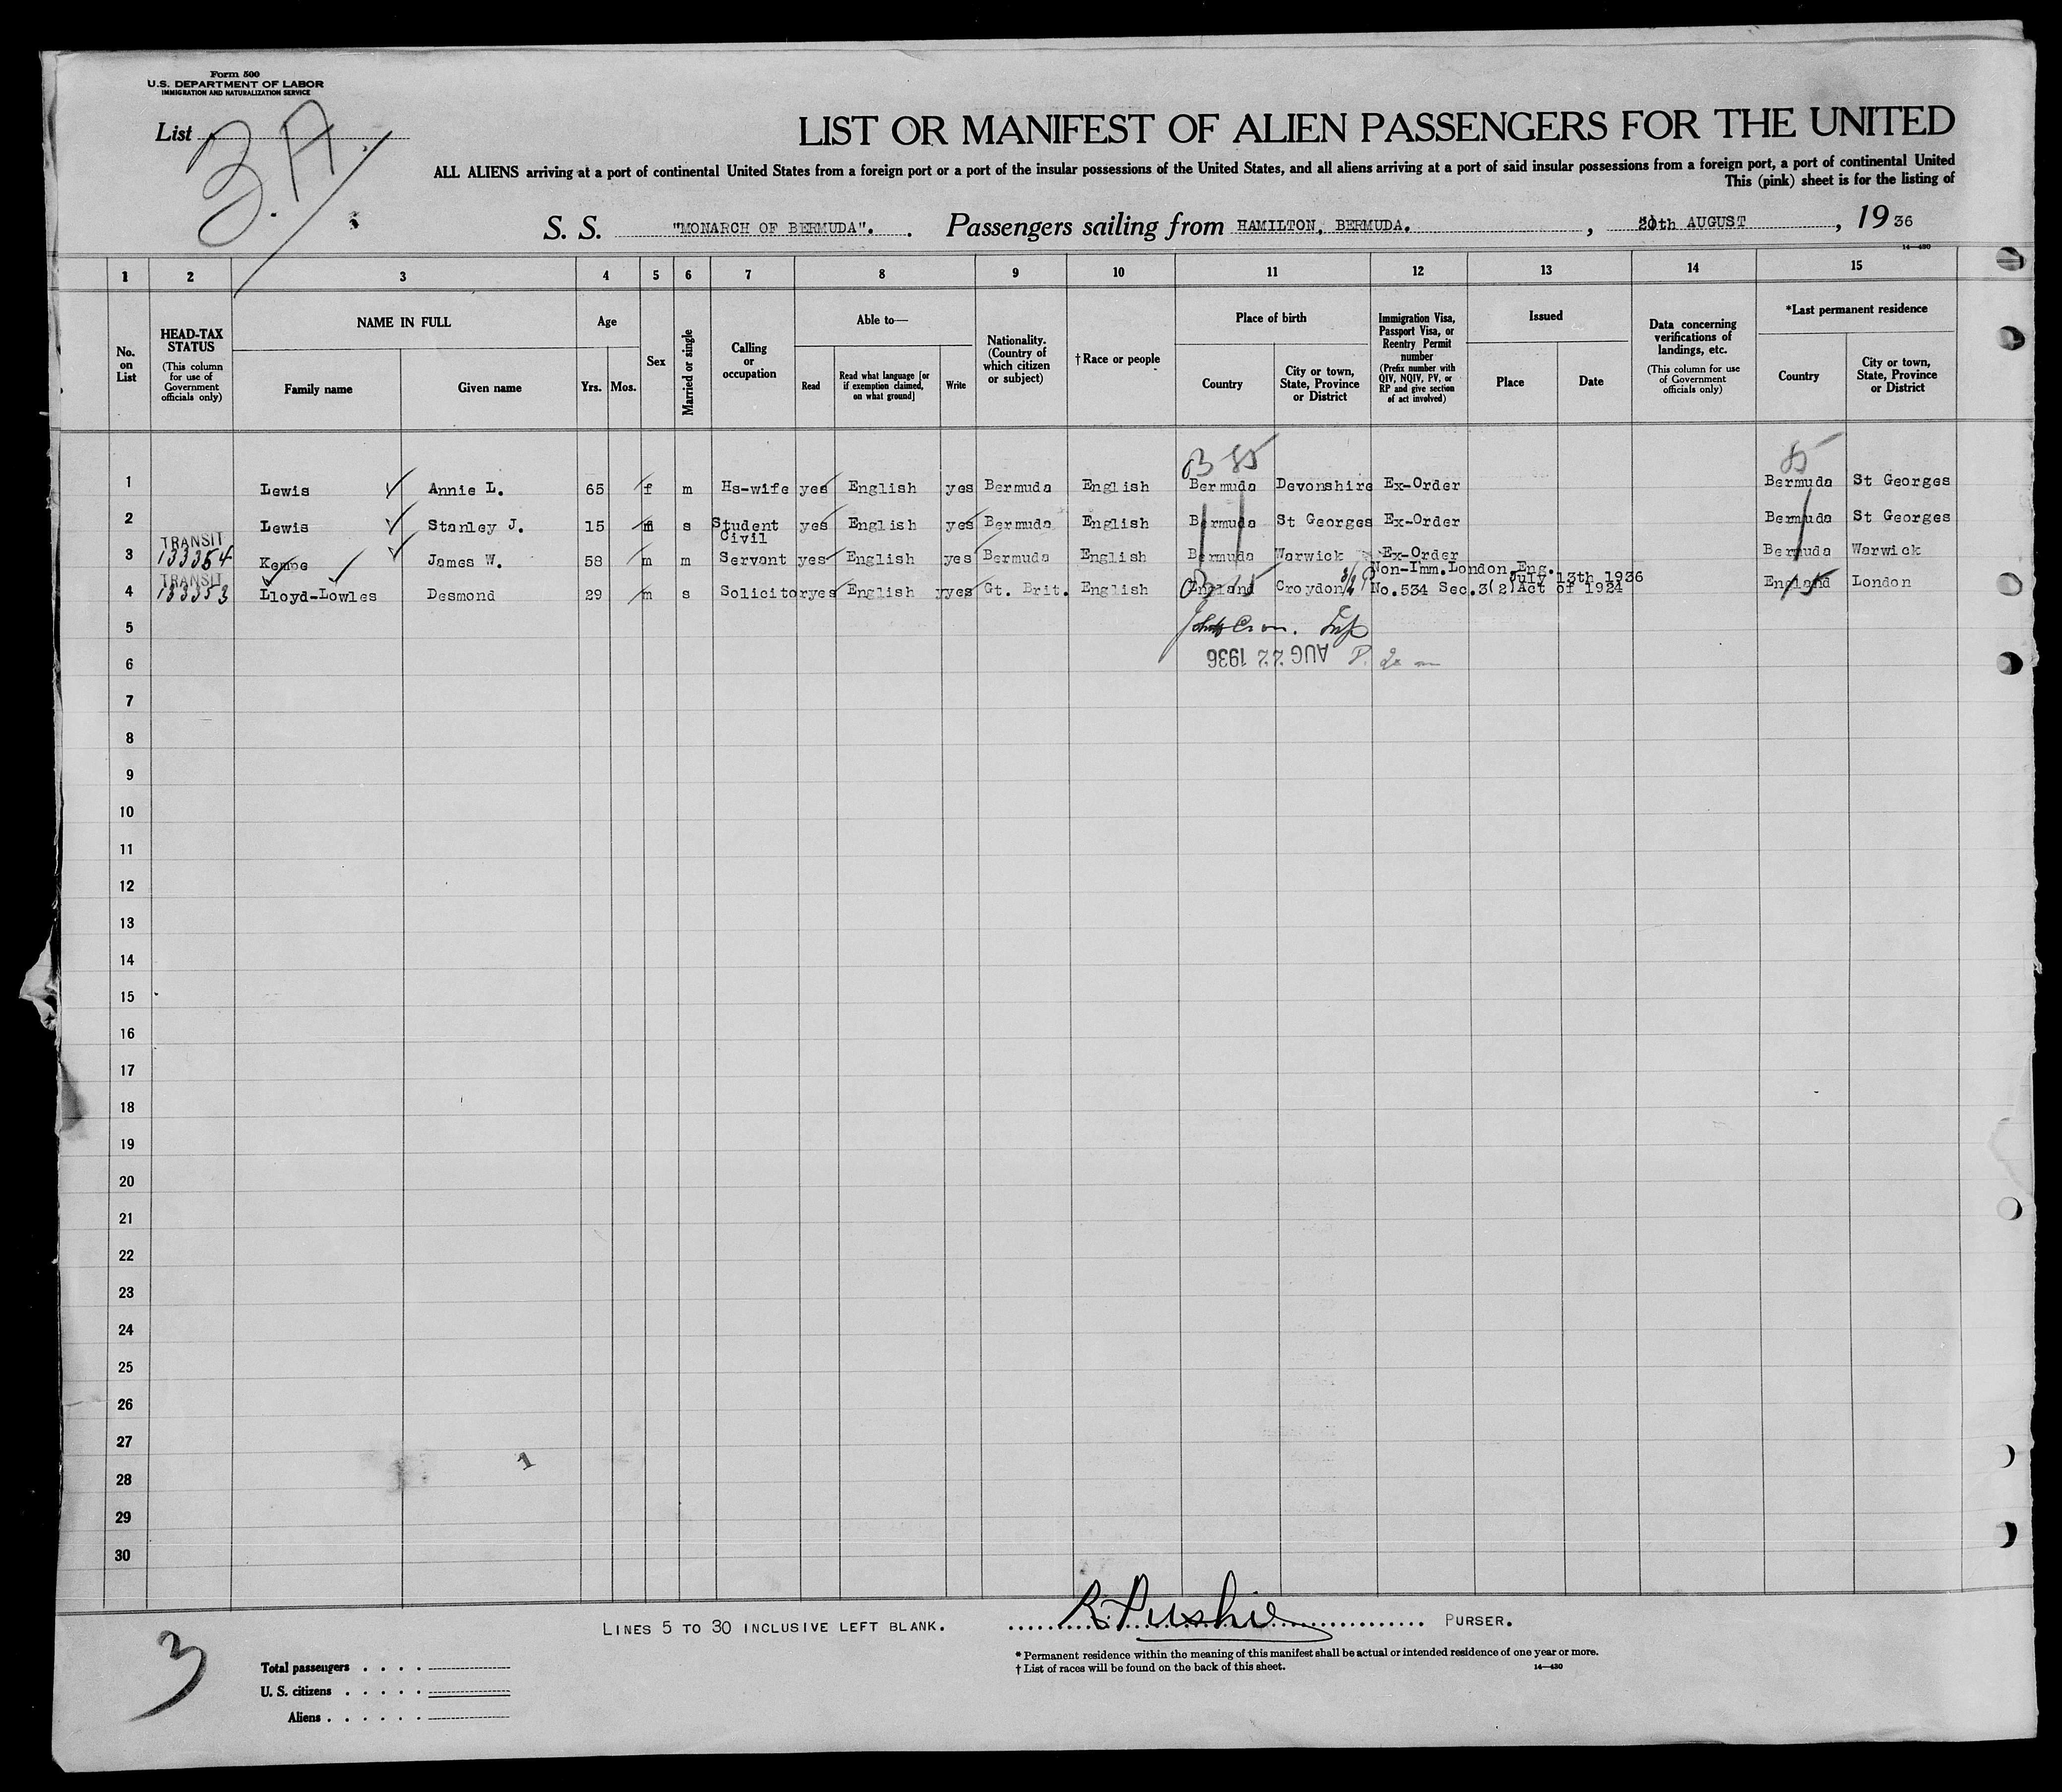 Form 500
U.S. DEPARTMENT OF LABOR
IMMIGRATION AND NATURALIZATION SERVICE
List 3.A.
LIST OR MANIFEST OF ALIEN PASSENGERS FOR THE UNITED
ALL ALIENS arriving at a port of continental United States from a foreign port or a port of the insular possessions of the United States, and all aliens arriving at a port of said insular possessions from a foreign port, a port of continental United
This (pink) sheet is for the listing of
S. S. "MONARCH OF BERMUDA". Passengers sailing from HAMILTON, BERMUDA. , 20th AUGUST , 19 36
14—430
1 2 3 4 5 6 7 8 9 10 11 12 13 14 15
No. on List
HEAD-TAX STATUS
(This column for use of Government officials only)
NAME IN FULL
Family name
Given name
Age
Yrs.
Mos.
Sex
Married or single
Calling or occupation
Able to—
Read
Read what language [or if exemption claimed, on what ground]
Write
Nationality. (Country of which citizen or subject)
†Race or people
Place of birth
Country
City or town, State, Province or District
Immigration Visa, Passport Visa, or Reentry Permit number
(Prefix number with QIV, NQIV, PV, or RP and give section of act involved)
Issued
Place
Date
Data concerning verifications of landings, etc.
(This column for use of Government officials only)
*Last permanent residence
Country
City or town, State, Province or District
1 Lewis Annie L. 65 f m Hs-wife yes English yes Bermuda English Bermuda Devonshire Ex-Order Bermuda St Georges
2 Lewis Stanley J. 15 m s Student yes English yes Bermuda English Bermuda St Georges Ex-Order Bermuda St Georges
TRANSIT
3 133354 Kempe James W. 58 m m Civil Servant yes English yes Bermuda English Bermuda Warwick Ex-Order Bermuda Warwick
TRANSIT
4 133353 Lloyd-Lowles Desmond 29 m s Solicitor yes English yes Gt. Brit. English England Croydon Non-Imm. London Eng. July 13th 1936 No.534 Sec.3(2)Act of 1924 England London
5
6 AUG 22 1936
7
8
9
10
11
12
13
14
15
16
17
18
19
20
21
22
23
24
25
26
27
28
29
30
LINES 5 TO 30 INCLUSIVE LEFT BLANK.
R. Pushie PURSER.
* Permanent residence within the meaning of this manifest shall be actual or intended residence of one year or more.
† List of races will be found on the back of this sheet.
14—430
3
Total passengers
U. S. citizens
Aliens